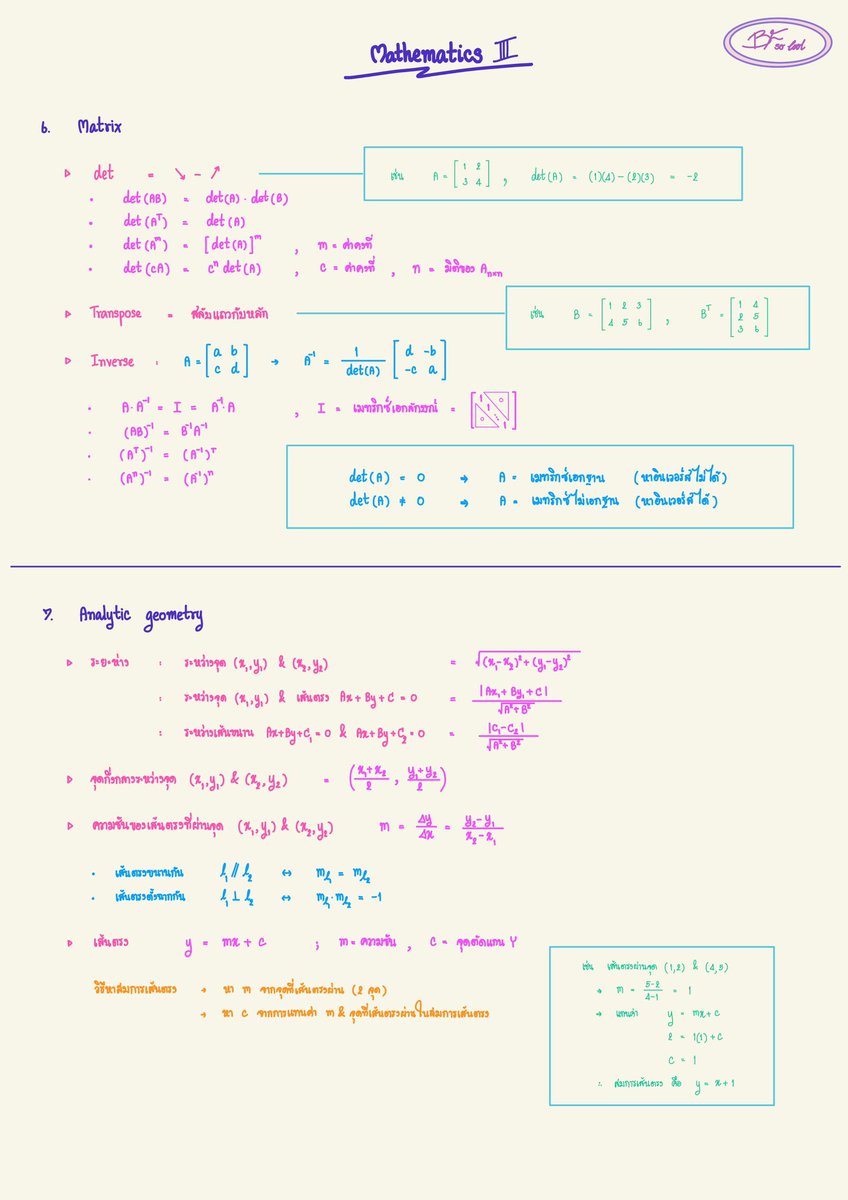 Mathematics III
BF so lool
6. Matrix
▷ det = ↘ - ↗
เช่น A = [1 2; 3 4] , det(A) = (1)(4)-(2)(3) = -2
• det(AB) = det(A)·det(B)
• det(Aᵀ) = det(A)
• det(Aᵐ) = [det(A)]ᵐ , m = ค่าคงที่
• det(cA) = cⁿ det(A) , c = ค่าคงที่ , n = มิติของ Aₙₓₙ
▷ Transpose = สลับแถวกับหลัก
เช่น B = [1 2 3; 4 5 6] , Bᵀ = [1 4; 2 5; 3 6]
▷ Inverse : A = [a b; c d] → A⁻¹ = 1/det(A) [d -b; -c a]
• A·A⁻¹ = I = A⁻¹·A , I = เมทริกซ์เอกลักษณ์ = [1 0 1 0 ⋱ 1]
• (AB)⁻¹ = B⁻¹A⁻¹
• (Aᵀ)⁻¹ = (A⁻¹)ᵀ
• (Aⁿ)⁻¹ = (A⁻¹)ⁿ
det(A) = 0 → A = เมทริกซ์เอกฐาน (หาอินเวอร์สไม่ได้)
det(A) ≠ 0 → A = เมทริกซ์ไม่เอกฐาน (หาอินเวอร์สได้)
7. Analytic geometry
▷ ระยะห่าง : ระหว่างจุด (x₁,y₁) & (x₂,y₂) = √((x₁-x₂)²+(y₁-y₂)²)
: ระหว่างจุด (x₁,y₁) & เส้นตรง Ax+By+C=0 = |Ax₁+By₁+C|/√(A²+B²)
: ระหว่างเส้นขนาน Ax+By+C₁=0 & Ax+By+C₂=0 = |C₁-C₂|/√(A²+B²)
▷ จุดกึ่งกลางระหว่างจุด (x₁,y₁) & (x₂,y₂) = ((x₁+x₂)/2 , (y₁+y₂)/2)
▷ ความชันของเส้นตรงที่ผ่านจุด (x₁,y₁) & (x₂,y₂) m = Δy/Δx = (y₂-y₁)/(x₂-x₁)
• เส้นตรงขนานกัน l₁ // l₂ ↔ m_l₁ = m_l₂
• เส้นตรงตั้งฉากกัน l₁ ⊥ l₂ ↔ m_l₁·m_l₂ = -1
▷ เส้นตรง y = mx + c ; m = ความชัน , c = จุดตัดแกน Y
วิธีหาสมการเส้นตรง → หา m จากจุดที่เส้นตรงผ่าน (2 จุด)
→ หา c จากการแทนค่า m & จุดที่เส้นตรงผ่านในสมการเส้นตรง
เช่น เส้นตรงผ่านจุด (1,2) & (4,5)
→ m = (5-2)/(4-1) = 1
→ แทนค่า y = mx+c
2 = 1(1)+c
c = 1
∴ สมการเส้นตรง คือ y = x+1